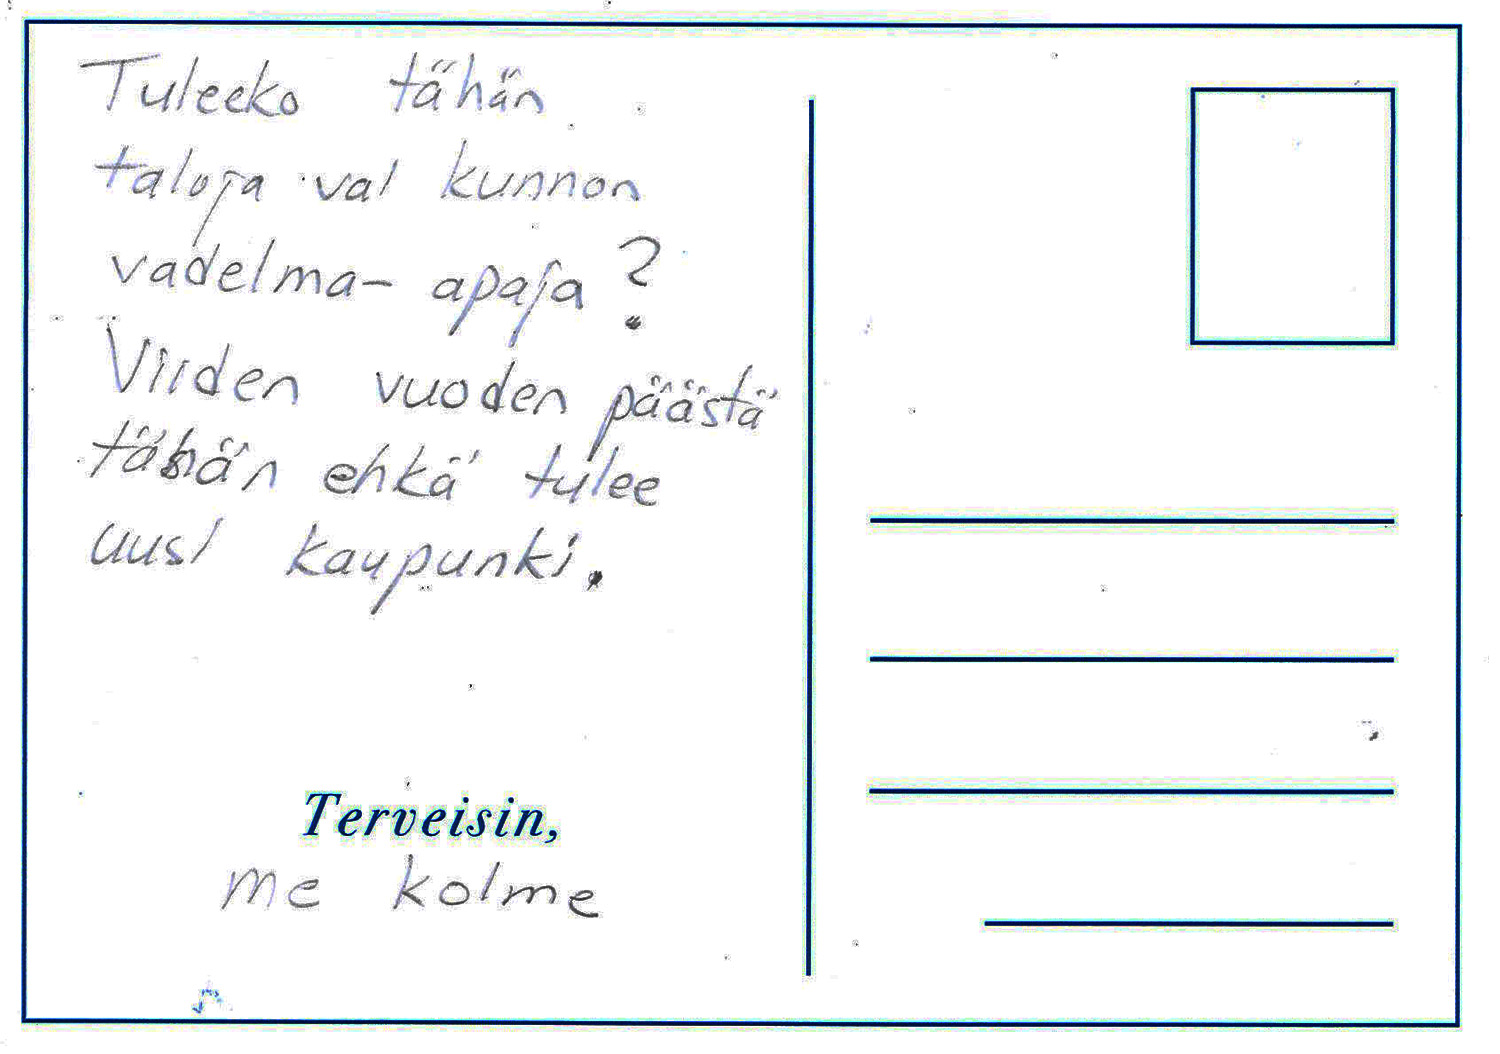 Tuleeko tähän
taloja vai kunnon
vadelma- apaja?
Viiden vuoden päästä
tähän ehkä tulee
uusi kaupunki.
Terveisin,
me kolme